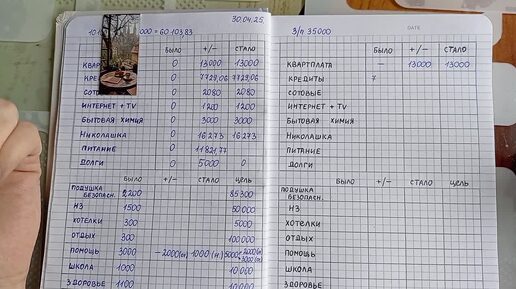 30.04.25
000 = 60.103,83
БЫЛО +/- СТАЛО
КВАРТ 0 13000 13000
КРЕ 0 7729,06 7729,06
СОТО 0 2080 2080
ИНТЕРНЕТ + TV 0 1200 1200
БЫТОВАЯ ХИМИЯ 0 3000 3000
НИКОЛАШКА 0 16273 16273
ПИТАНИЕ 0 11821,77
ДОЛГИ 0 5000 0
БЫЛО +/- СТАЛО ЦЕЛЬ
ПОДУШКА БЕЗОПАСН. 2200 85300
НЗ 1500 50000
ХОТЕЛКИ 300 5000
ОТДЫХ 300 100000
ПОМОЩЬ 3000 -2000(н) 1000 (н) 5000
ШКОЛА 1000 10000
ЗДОРОВЬЕ 1100 10000
З/п 35000 DATE
БЫЛО +/- СТАЛО
КВАРТПЛАТА - 13000 13000
КРЕДИТЫ 7
СОТОВЫЕ
ИНТЕРНЕТ + TV
БЫТОВАЯ ХИМИЯ
НИКОЛАШКА
ПИТАНИЕ
ДОЛГИ
БЫЛО +/- СТАЛО ЦЕЛЬ
ПОДУШКА БЕЗОПАСН.
НЗ
ХОТЕЛКИ
ОТДЫХ
ПОМОЩЬ
ШКОЛА
ЗДОРОВЬЕ